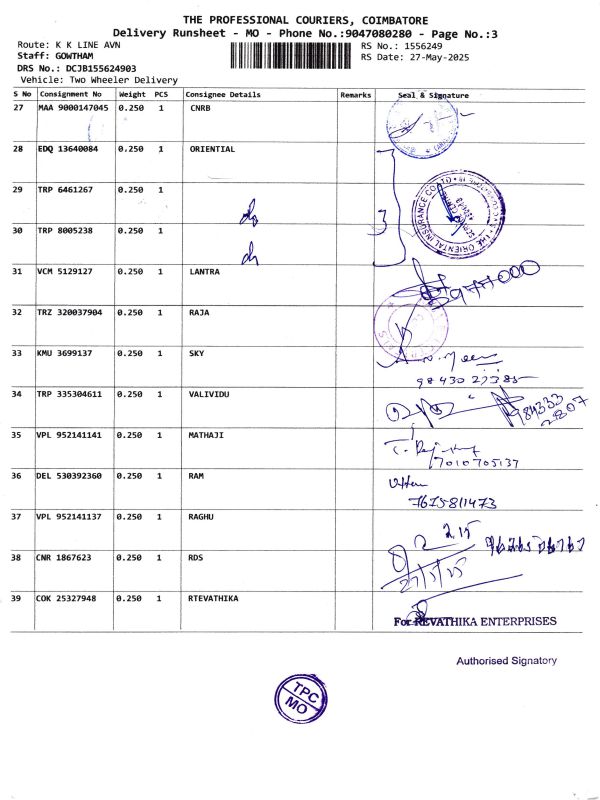 THE PROFESSIONAL COURIERS, COIMBATORE
Delivery Runsheet - MO - Phone No.:9047080280 - Page No.:3
Route: K K LINE AVN
RS No.: 1556249
Staff: GOWTHAM
RS Date: 27-May-2025
DRS No.: DCJB155624903
Vehicle: Two Wheeler Delivery
S No Consignment No Weight PCS Consignee Details Remarks Seal & Signature
27 MAA 9000147045 0.250 1 CNRB
28 EDQ 13640084 0.250 1 ORIENTIAL
29 TRP 6461267 0.250 1
do
30 TRP 8005238 0.250 1
do
THE ORIENTAL INSURANCE CO. LTD
31 VCM 5129127 0.250 1 LANTRA
32 TRZ 320037904 0.250 1 RAJA
33 KMU 3699137 0.250 1 SKY
34 TRP 335304611 0.250 1 VALIVIDU
35 VPL 952141141 0.250 1 MATHAJI
7010705137
36 DEL 530392360 0.250 1 RAM
7675811473
37 VPL 952141137 0.250 1 RAGHU
2.15
38 CNR 1867623 0.250 1 RDS
27/5/25
39 COK 25327948 0.250 1 RTEVATHIKA
For REVATHIKA ENTERPRISES
Authorised Signatory
TPC
MO